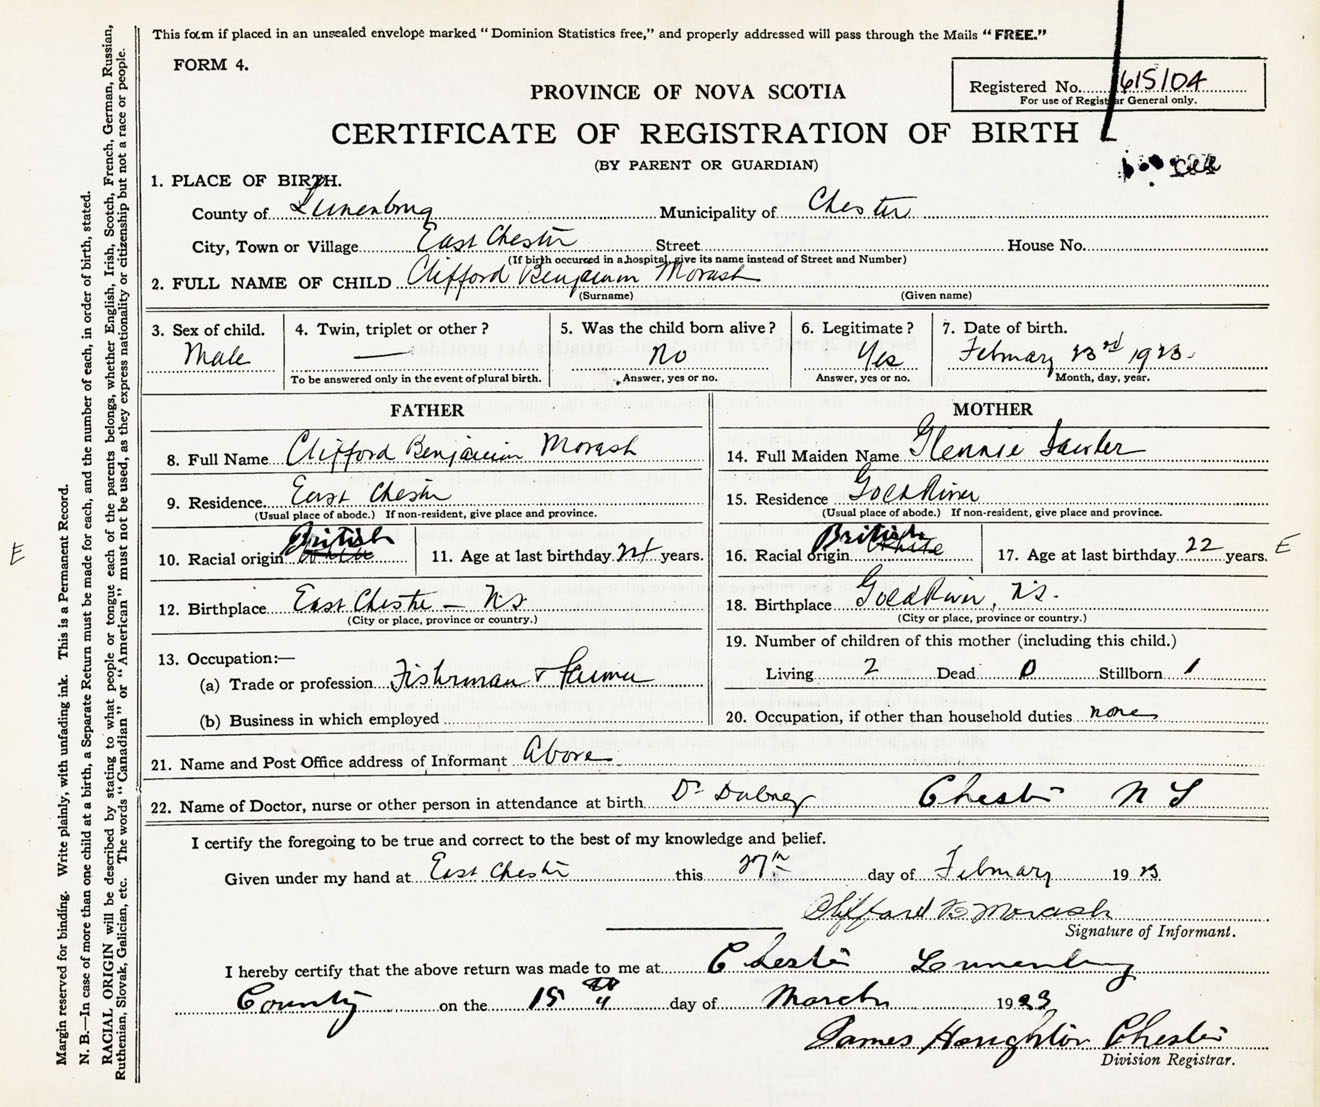 This form if placed in an unsealed envelope marked "Dominion Statistics free," and properly addressed will pass through the Mails "FREE."
FORM 4.
Registered No. 615104
For use of Registrar General only.
PROVINCE OF NOVA SCOTIA
CERTIFICATE OF REGISTRATION OF BIRTH
(BY PARENT OR GUARDIAN)
1. PLACE OF BIRTH.
County of Lunenburg Municipality of Chester
City, Town or Village East Chester Street House No.
(If birth occured in a hospital, give its name instead of Street and Number)
2. FULL NAME OF CHILD Clifford Benjamin Morash
(Surname) (Given name)
3. Sex of child. Male
4. Twin, triplet or other? —
To be answered only in the event of plural birth.
5. Was the child born alive? No
Answer, yes or no.
6. Legitimate? Yes
Answer, yes or no.
7. Date of birth. February 23rd 1923.
Month, day, year.
FATHER
8. Full Name Clifford Benjamin Morash
9. Residence East Chester
(Usual place of abode.) If non-resident, give place and province.
10. Racial origin British White
11. Age at last birthday years.
12. Birthplace East Chester - NS
(City or place, province or country.)
13. Occupation:—
(a) Trade or profession Fisherman & Farmer
(b) Business in which employed
MOTHER
14. Full Maiden Name Glennie
15. Residence Gold River
(Usual place of abode.) If non-resident, give place and province.
16. Racial origin British White
17. Age at last birthday 22 years.
E
E
18. Birthplace Gold River, N.S.
(City or place, province or country.)
19. Number of children of this mother (including this child.)
Living 2 Dead 0 Stillborn 1
20. Occupation, if other than household duties none
21. Name and Post Office address of Informant Above
22. Name of Doctor, nurse or other person in attendance at birth Dr Chester N S
I certify the foregoing to be true and correct to the best of my knowledge and belief.
Given under my hand at East Chester this 27th day of February 1923
Clifford B Morash
Signature of Informant.
I hereby certify that the above return was made to me at Chester Lunenburg
County on the 15 day of March 1923
James Houghton Chester
Division Registrar.
Margin reserved for binding. Write plainly, with unfading ink. This is a Permanent Record.
N. B.—In case of more than one child at a birth, a Separate Return must be made for each, and the number of each, in order of birth, stated.
RACIAL ORIGIN will be described by stating to what people or tongue each of the parents belongs, whether English, Irish, Scotch, French, German, Russian,
Ruthenian, Slovak, Galician, etc. The words "Canadian" or "American" must not be used, as they express nationality or citizenship but not a race or people.